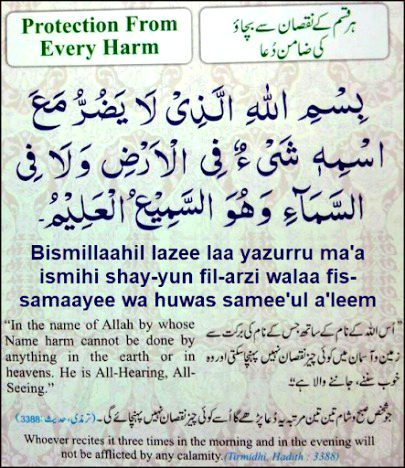 Protection From
Every Harm
ہر قسم کے نقصان سے بچاؤ
کی ضامن دُعا
بِسْمِ اللهِ الَّذِىْ لَا يَضُرُّ مَعَ
اسْمِهٖ شَىْءٌ فِى الْاَرْضِ وَلَا فِى
السَّمَآءِ وَهُوَ السَّمِيْعُ الْعَلِيْمُ۔
Bismillaahil lazee laa yazurru ma'a
ismihi shay-yun fil-arzi walaa fis-
samaayee wa huwas samee'ul a'leem
“In the name of Allah by whose
Name harm cannot be done by
anything in the earth or in
heavens. He is All-Hearing, All-
Seeing.”
”اُس اللہ کے نام کے ساتھ جس کے نام کی برکت سے
زمین و آسمان میں کوئی چیز نقصان نہیں پہنچا سکتی اور وہ
خوب سننے، جاننے والا ہے“
جو شخص صبح و شام تین تین مرتبہ یہ دُعا پڑھے گا اُسے کوئی چیز نقصان نہیں پہنچائے گی۔ (ترمذی، حدیث: 3388)
Whoever recites it three times in the morning and in the evening will
not be afflicted by any calamity. (Tirmidhi, Hadith : 3388)